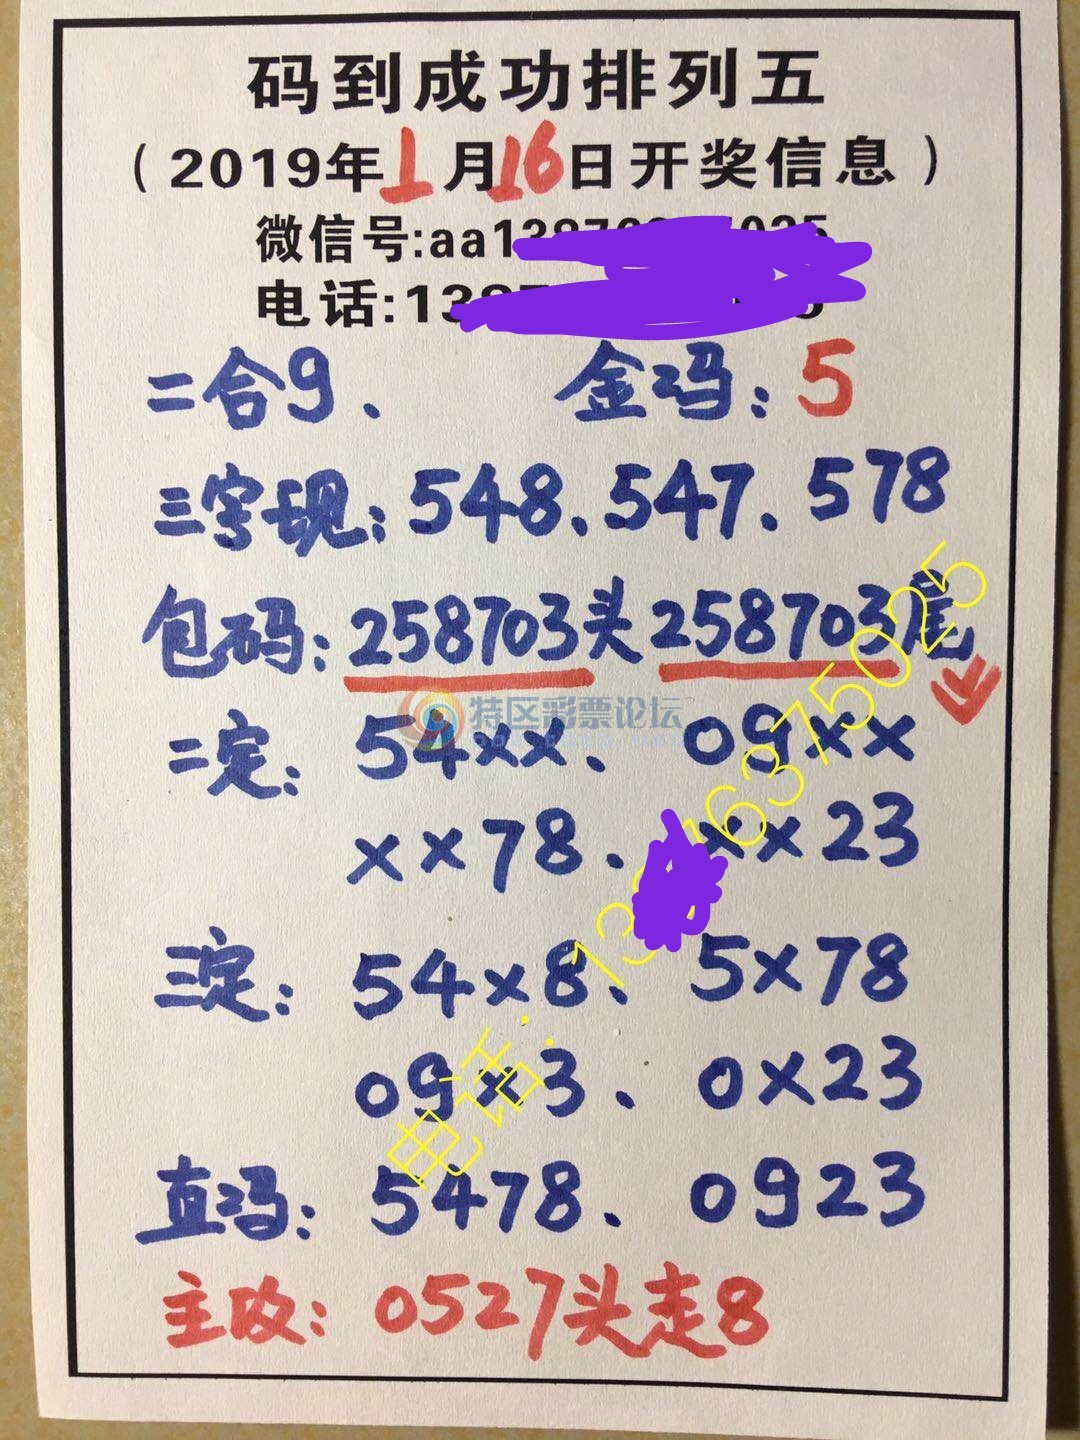 码到成功排列五
(2019年1月16日开奖信息)
微信号:aa
电话:13
二合9、 金码:5
三字现:548、547、578
包码:258703头258703尾
特区彩票论坛
二定:54××、09××
××78、××23
三定:54×8、5×78
09×3、0×23
直码:5478、0923
主攻:0527头走8
电话:13 1637 5025